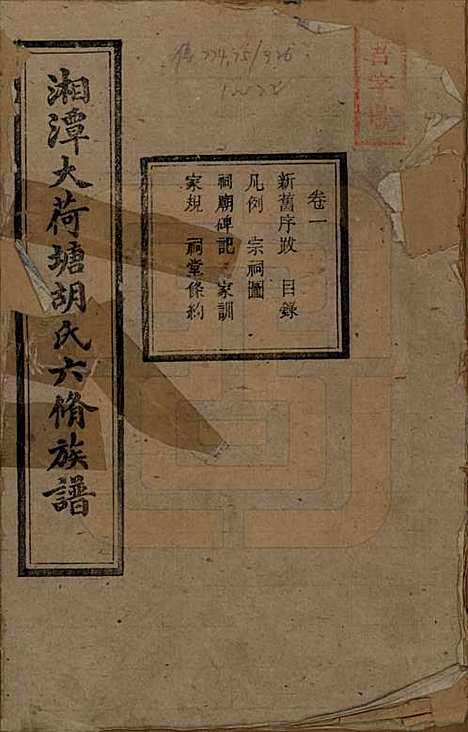 湘潭大荷塘胡氏六脩族譜
卷一
新舊序跋　目錄
凡例　宗祠圖
祠廟碑記　家訓
家規　祠堂條約